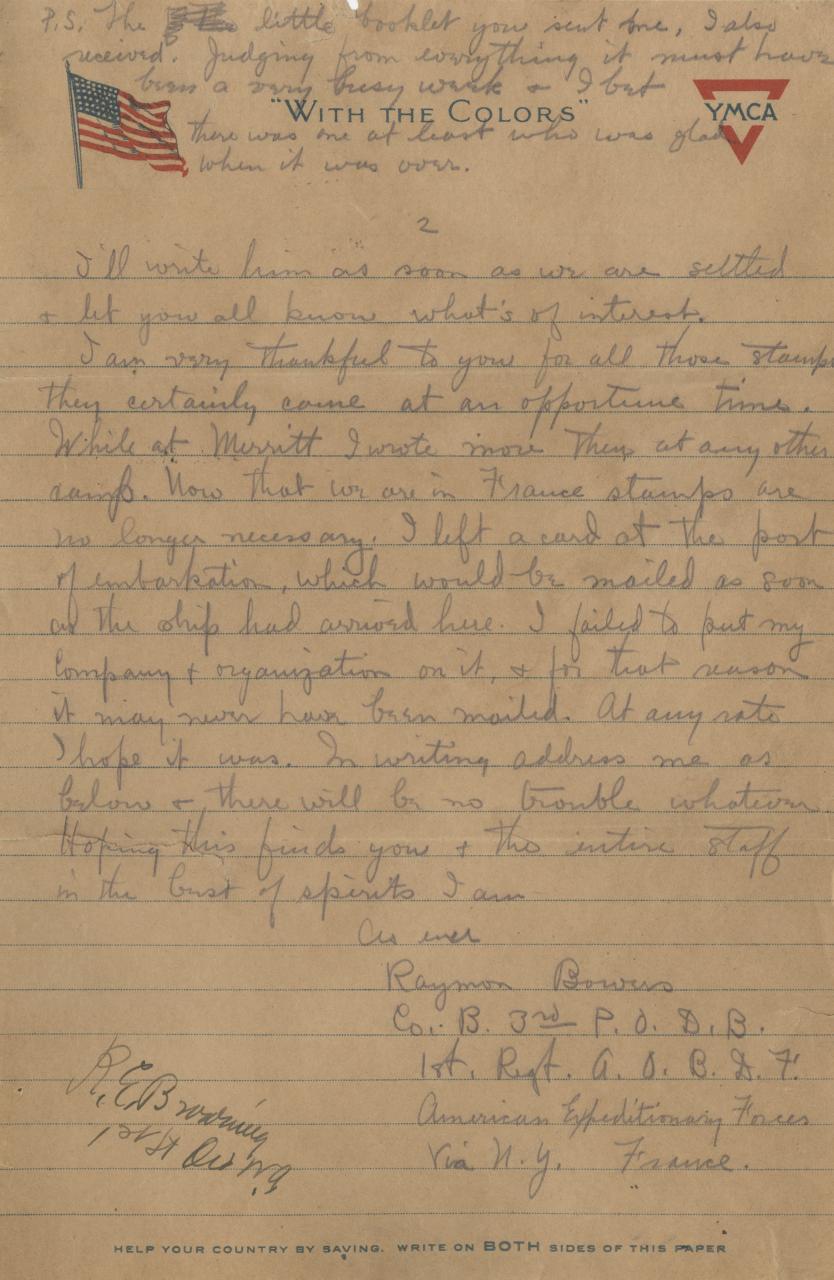 P.S. The little booklet you sent me, I also
received. Judging from everything it must have
been a very busy week & I bet
"WITH THE COLORS"
YMCA
there was one at least who was glad
when it was over.
2
I'll write him as soon as we are settled
& let you all know what's of interest.
I am very thankful to you for all those stamps
they certainly came at an opportune time.
While at Merritt I wrote more then at any other
camp. Now that we are in France stamps are
no longer necessary. I left a card at the port
of embarkation, which would be mailed as soon
as the ship had arrived here. I failed to put my
Company & organization on it, & for that reason
it may never have been mailed. At any rate
I hope it was. In writing address me as
below & there will be no trouble whatever.
Hoping this finds you & the entire staff
in the best of spirits I am
As ever
Raymon Bowers
Co. B. 3rd P. O. D. B.
1st. Regt. A. O. B. D. F.
American Expeditionary Forces
Via N.Y. France.
R.E. Browning
1st Lt
HELP YOUR COUNTRY BY SAVING. WRITE ON BOTH SIDES OF THIS PAPER